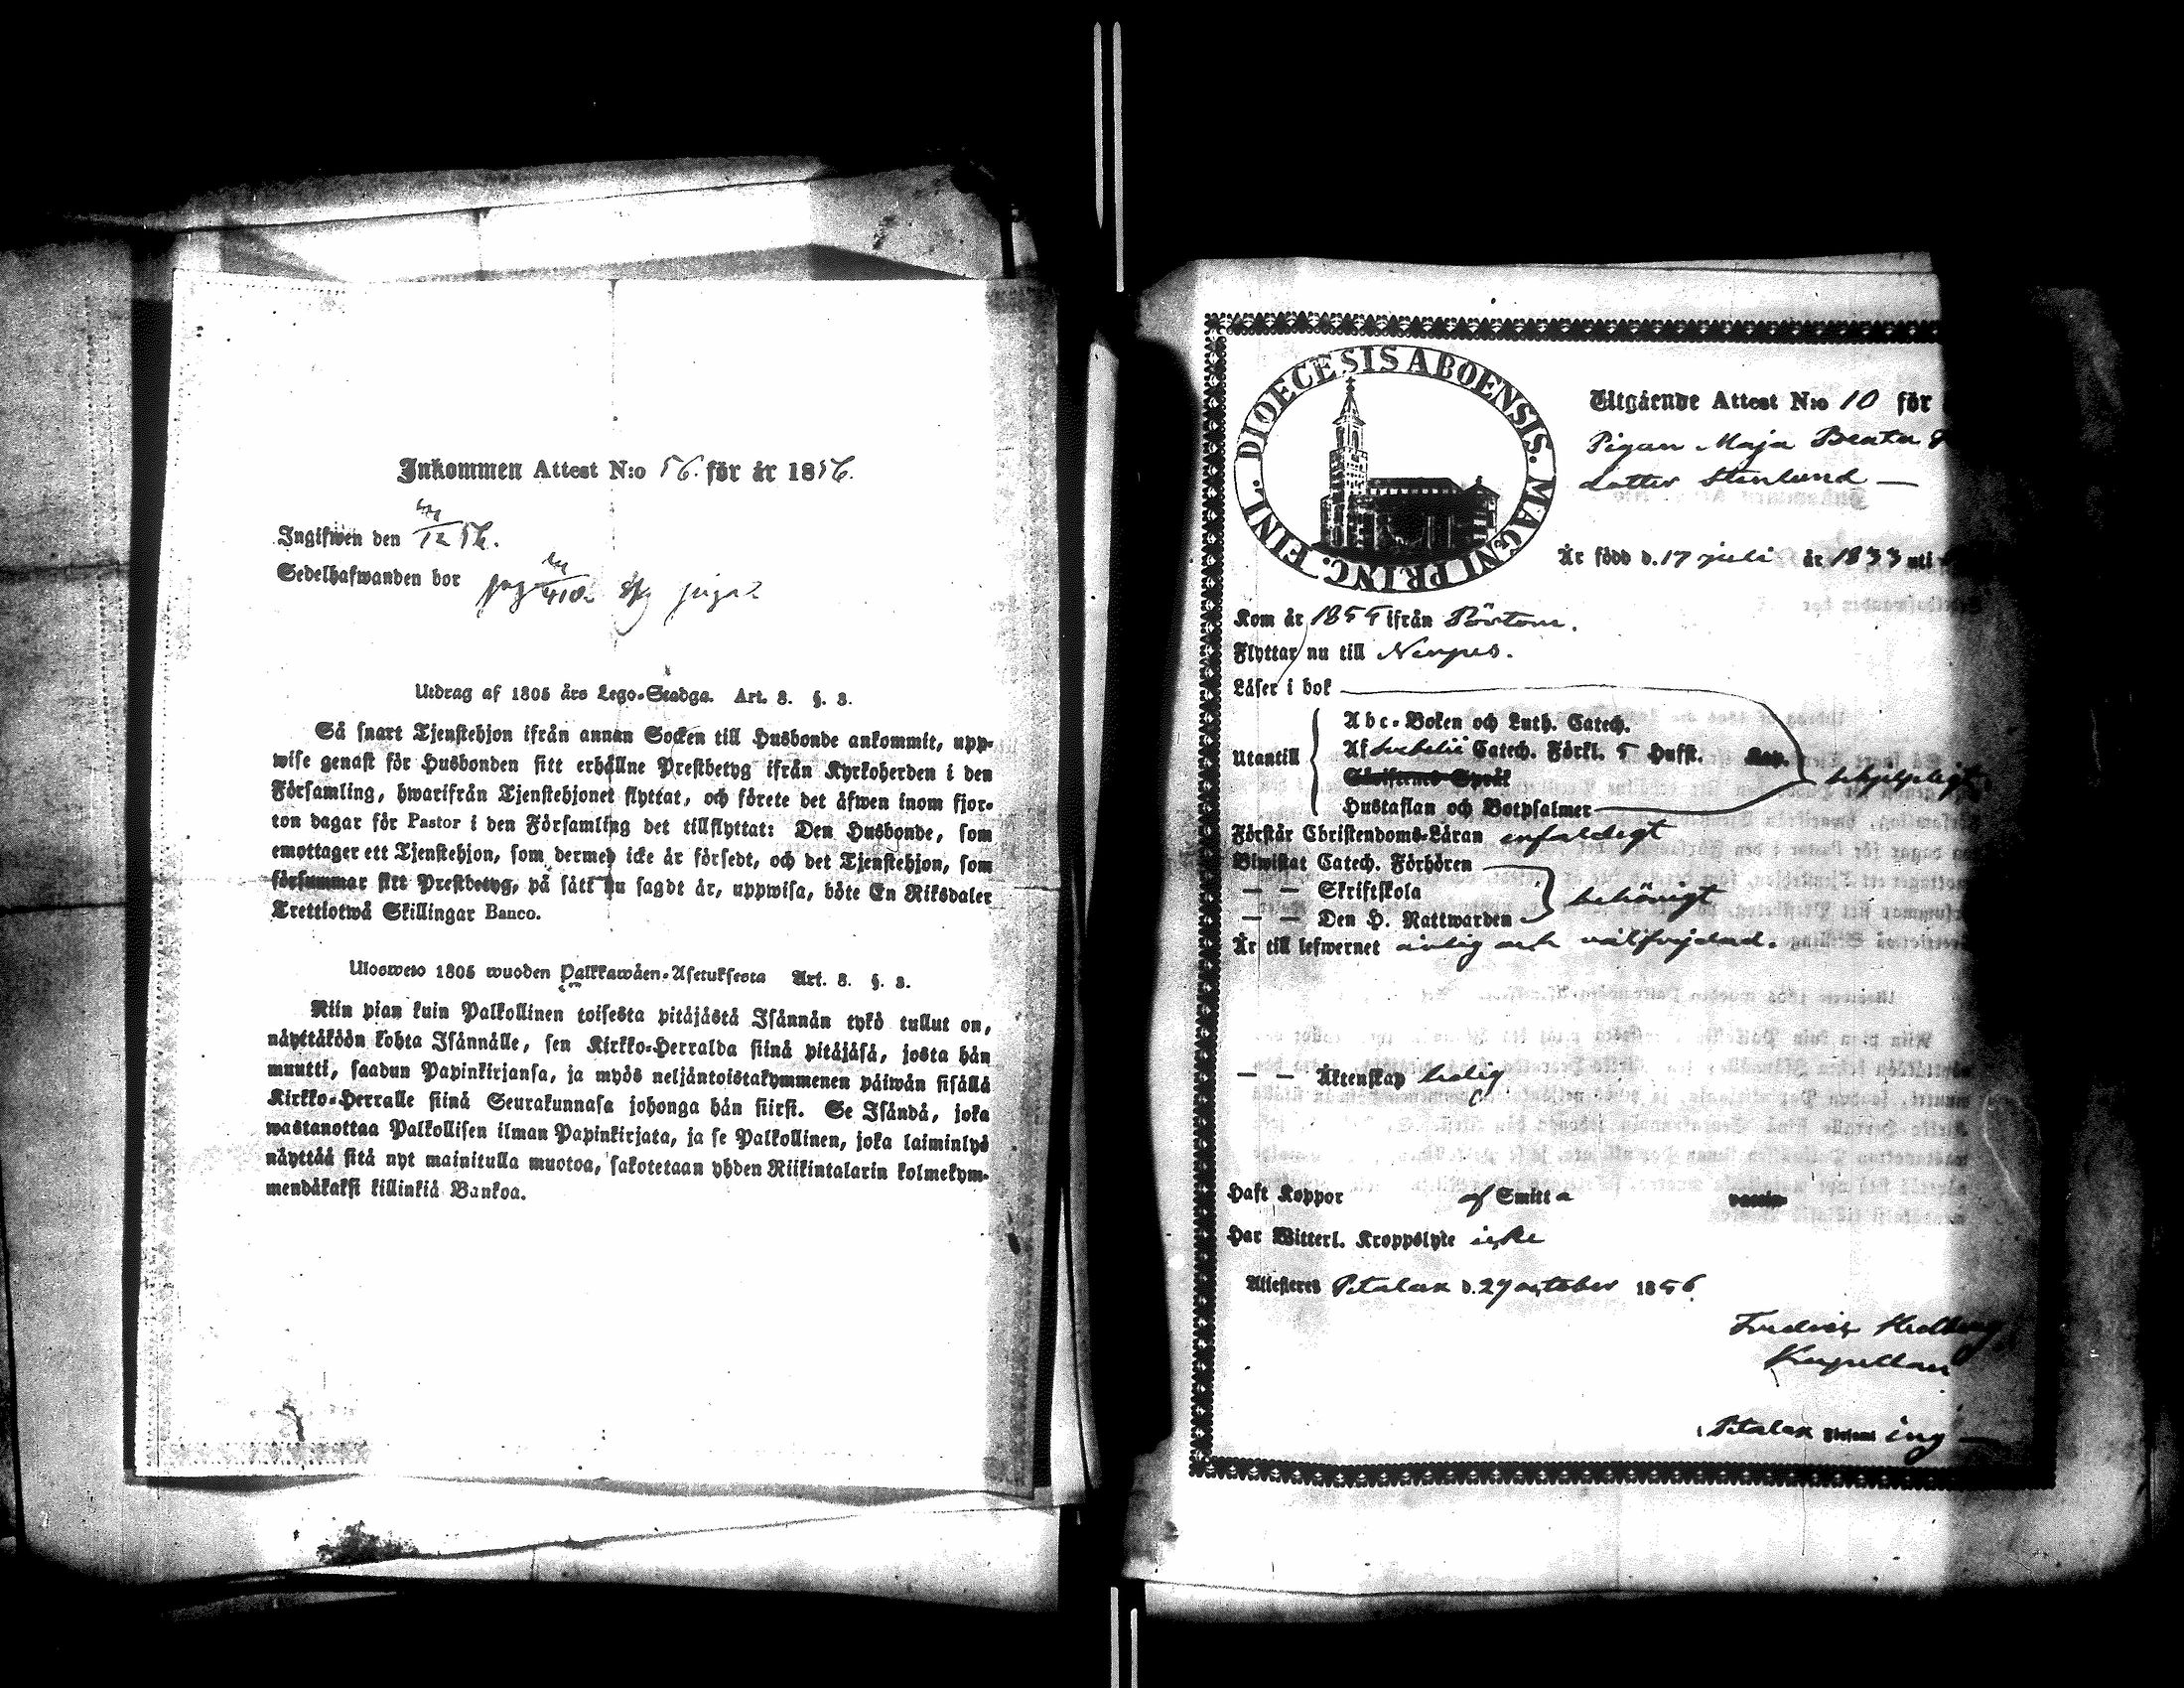 Inkommen Attest N:o 56. för år 1856.
Ingifwen den 12 56.
Sedelhafwanden bor
Utdrag af 1805 års Lego-Stadga. Art. 8. §. 3.
Så snart Tjenstehjon ifrån annan Socken till Husbonde ankommit, upp-
wise genast för Husbonden sitt erhållne Prestbetyg ifrån Kyrkoherden i den
Församling, hwarifrån Tjenstehjonet flyttat, och förete det äfwen inom fjor-
ton dagar för Pastor i den Församling det tillflyttat: Den Husbonde, som
emottager ett Tjenstehjon, som dermed icke är försedt, och det Tjenstehjon, som
försummar sitt Prestbetyg, på sätt nu sagdt är, uppwisa, böte En Riksdaler
Trettiotwå Skillingar Banco.
Ulosweto 1805 wuoden Palkkawäen-Asetuksesta Art. 8. §. 3.
Niin pian kuin Palkollinen toisesta pitäjästä Isännän tykö tullut on,
näyttäköön kohta Isännälle, sen Kirkko-Herralda siinä pitäjäsä, josta hän
muutti, saadun Papinkirjansa, ja myös neljäntoistakymmenen päiwän sisällä
Kirkko-Herralle siinä Seurakunnasa johonga hän siirsi. Se Isändä, joka
wastanottaa Palkollisen ilman Papinkirjata, ja se Palkollinen, joka laiminlyö
näyttää sitä nyt mainitulla muotoa, sakotetaan yhden Riikintalarin kolmekym-
mendäkaksi killinkiä Bankoa.
DIOECESIS ABOENSIS. MAGNI PRINC. FINL.
Utgående Attest N:o 10 för
Pigan Maja Beata
dotter Stenlund —
Är född d. 17 juli år 1833 uti
Kom år 1855 ifrån Pörtom.
Flyttar nu till Nerpes.
Läser i bok
Utantill
Abc-Boken och Luth. Catech.
Af Svebelii Catech. Förkl. 5 Hufst. Kap.
Skriftenes Språk
Hustaflan och Botpsalmer
behjelpligt
Förstår Christendoms-Läran enfaldigt
Biwistat Catech. Förhören
— — Skriftskola
— — Den H. Nattwarden
behörigt
Är till lefwernet ärlig och välfrejdad.
— — Äktenskap ledig
Haft Koppor af Smitta
Har Witterl. Kroppslyte icke
Attesteres Petalax d. 27 october 1856.
Fredric Hedberg
Kapellan
i Petalax Församl ing —